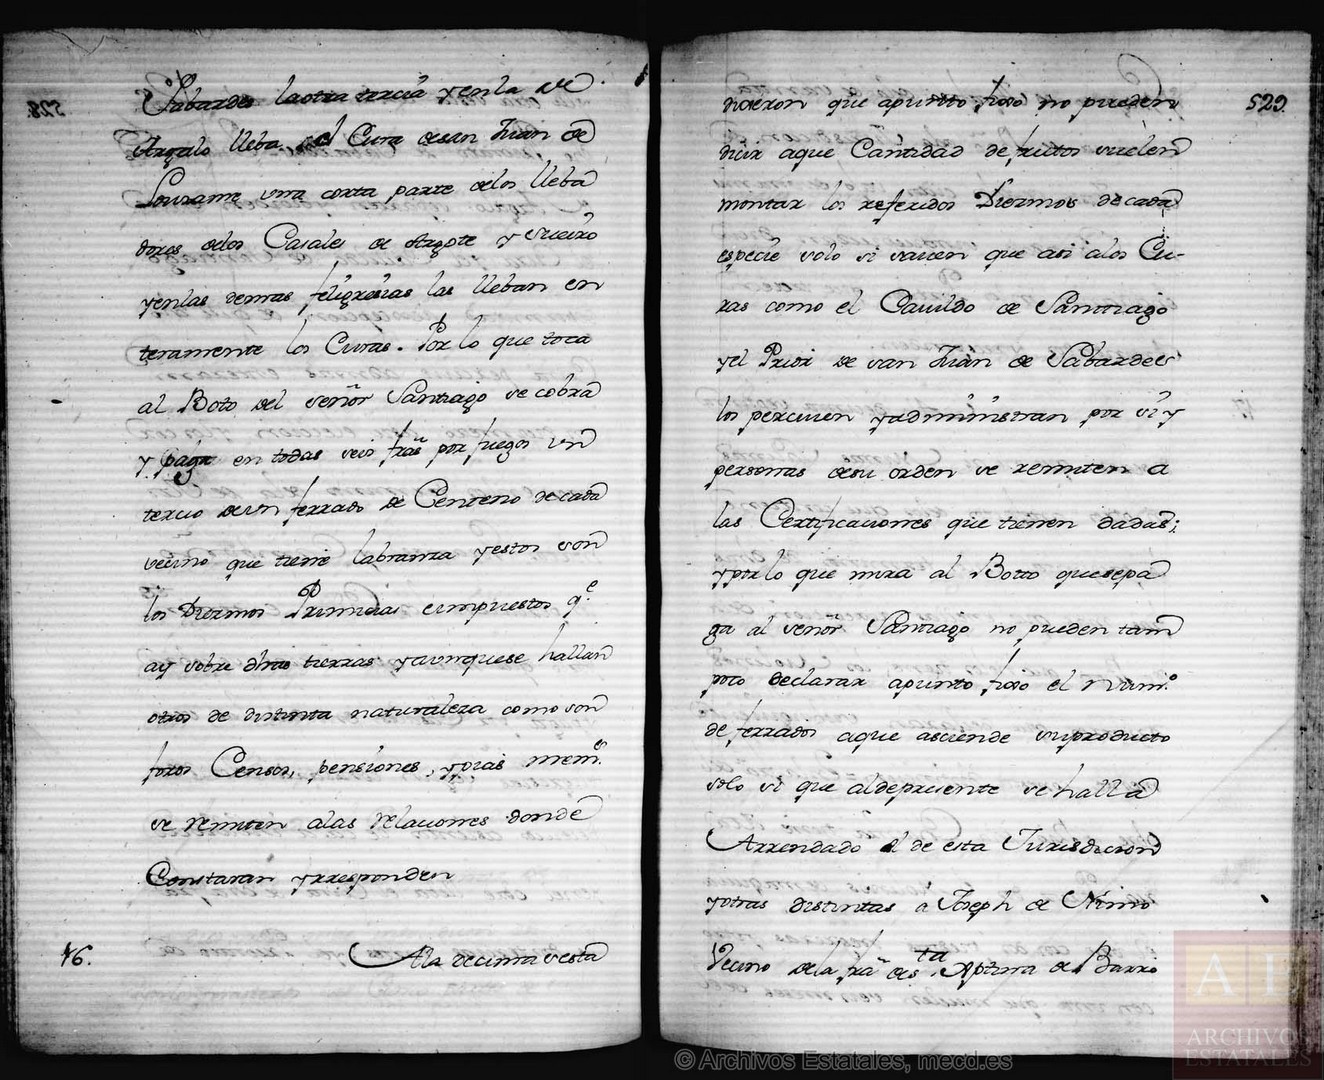 Sabardes la otra tercia y en la de
Argalo lleba el Cura de San Juan de
Lousame una corta parte de los lleba
dores de los Casales de Argote y Sueiro
y en las demas feligresias las lleban en
teramente los Curas. Por lo que toca
al Boto del señor Santiago se cobra
y paga en todas seis fras por fuegos un
tercio de un ferrado de Centeno de cada
vecino que tiene labranza y estos son
los Diezmos Primicias e impuestos q.e
ay sobre dhas tierras, y aunque se hallan
otros de distinta naturaleza como son
foros Censos, pensiones, y pias mem.s
se remiten a las relaciones donde
Constaran y rresponden
16. A la decima sesta
529.
dixeron que apunto fixo no pueden
dicir a que Cantidad de frutos suelen
montar los referidos Diezmos de cada
especie solo si saven que asi a los Cu-
ras como el Cavildo de Santiago
y el Prior de san Juan de Sabardes
los perciven y administran por si y
personas de su orden se remiten a
las Certificaciones que tienen dadas;
y por lo que mira al Botto que se pa
ga al señor Santiago no pueden tam
poco declarar apunto fixo el Num.o
de ferrados a que asciende su producto
solo si que al depresente se halla
Arrendado el de esta Jurisdicion
y otras distintas á Joseph de Nimo
Vecino de la fra de s.ta Xptina de Barro
© Archivos Estatales, mecd.es
AE
ARCHIVOS
ESTATALES